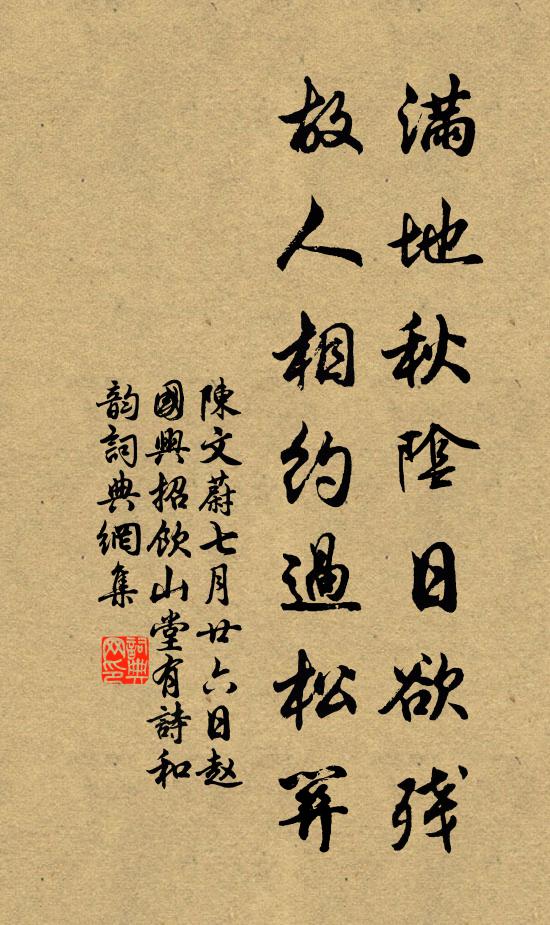 滿地秋陰日欲残
故人相約過松關
陳文蔚七月廿六日赵
國興招飲山堂有詩和
韵詞典網集
詞典
网印